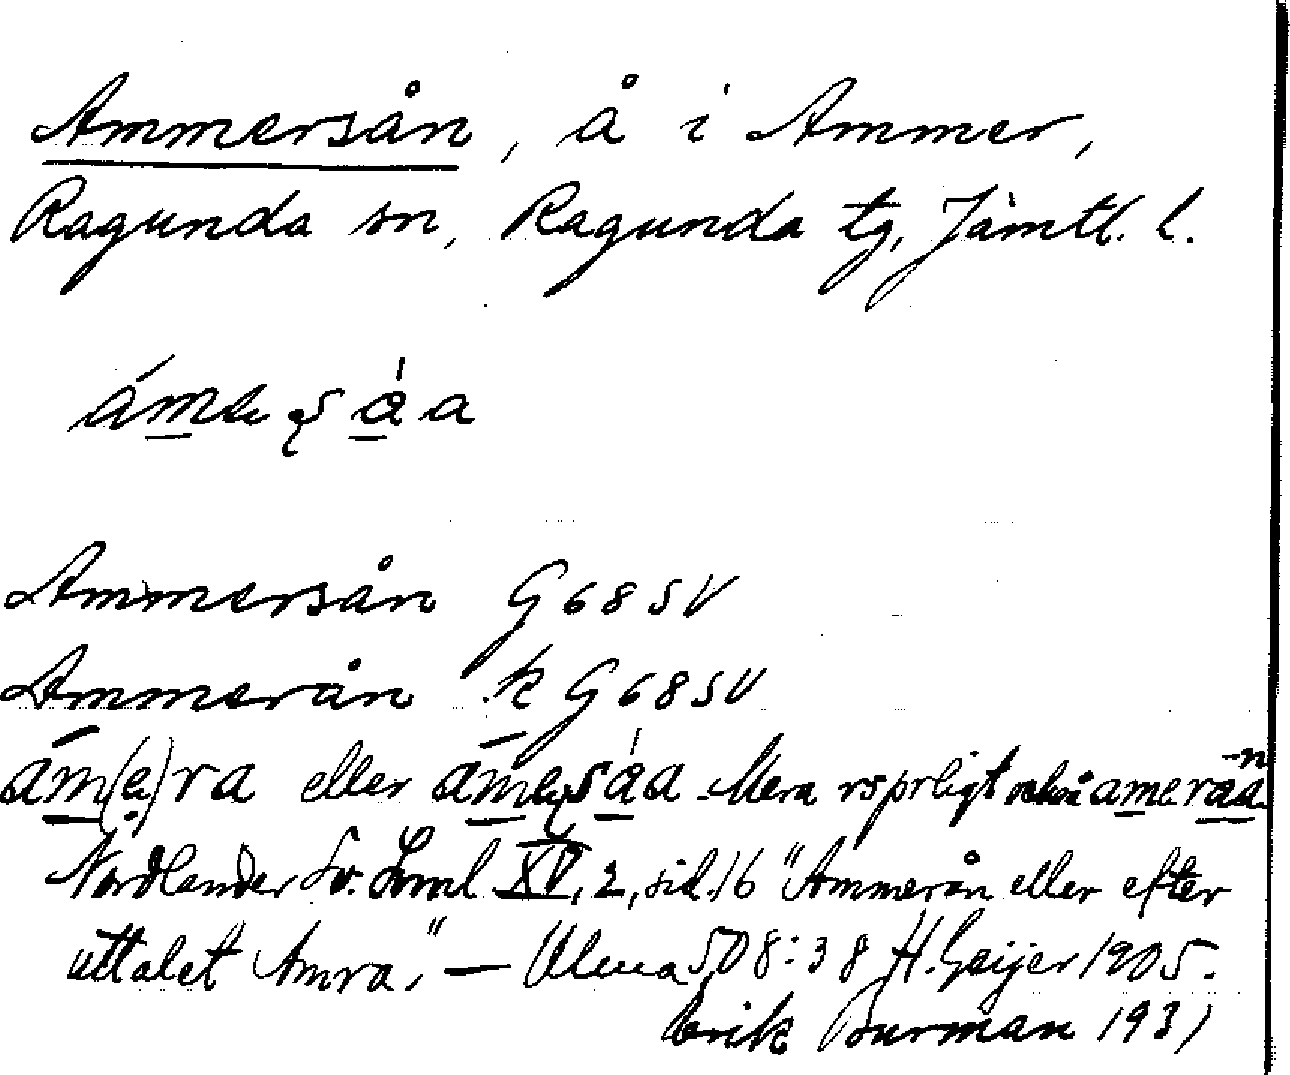 Ammersån, å i Ammer,
Ragunda sn, Ragunda tg, Jämtl. l.
ámesåa
Ammersån G 68 SV
Ammerån k G 68 SV
ám(e)ra eller ámesåa Mera ropligt också ameråa -n
Nordlander Sv. Lml XV, 2, sid. 16 "Ammerån eller efter
uttalet Amra," — Ulma 508:38 H. Geijer 1905.
Erik Burman 1931